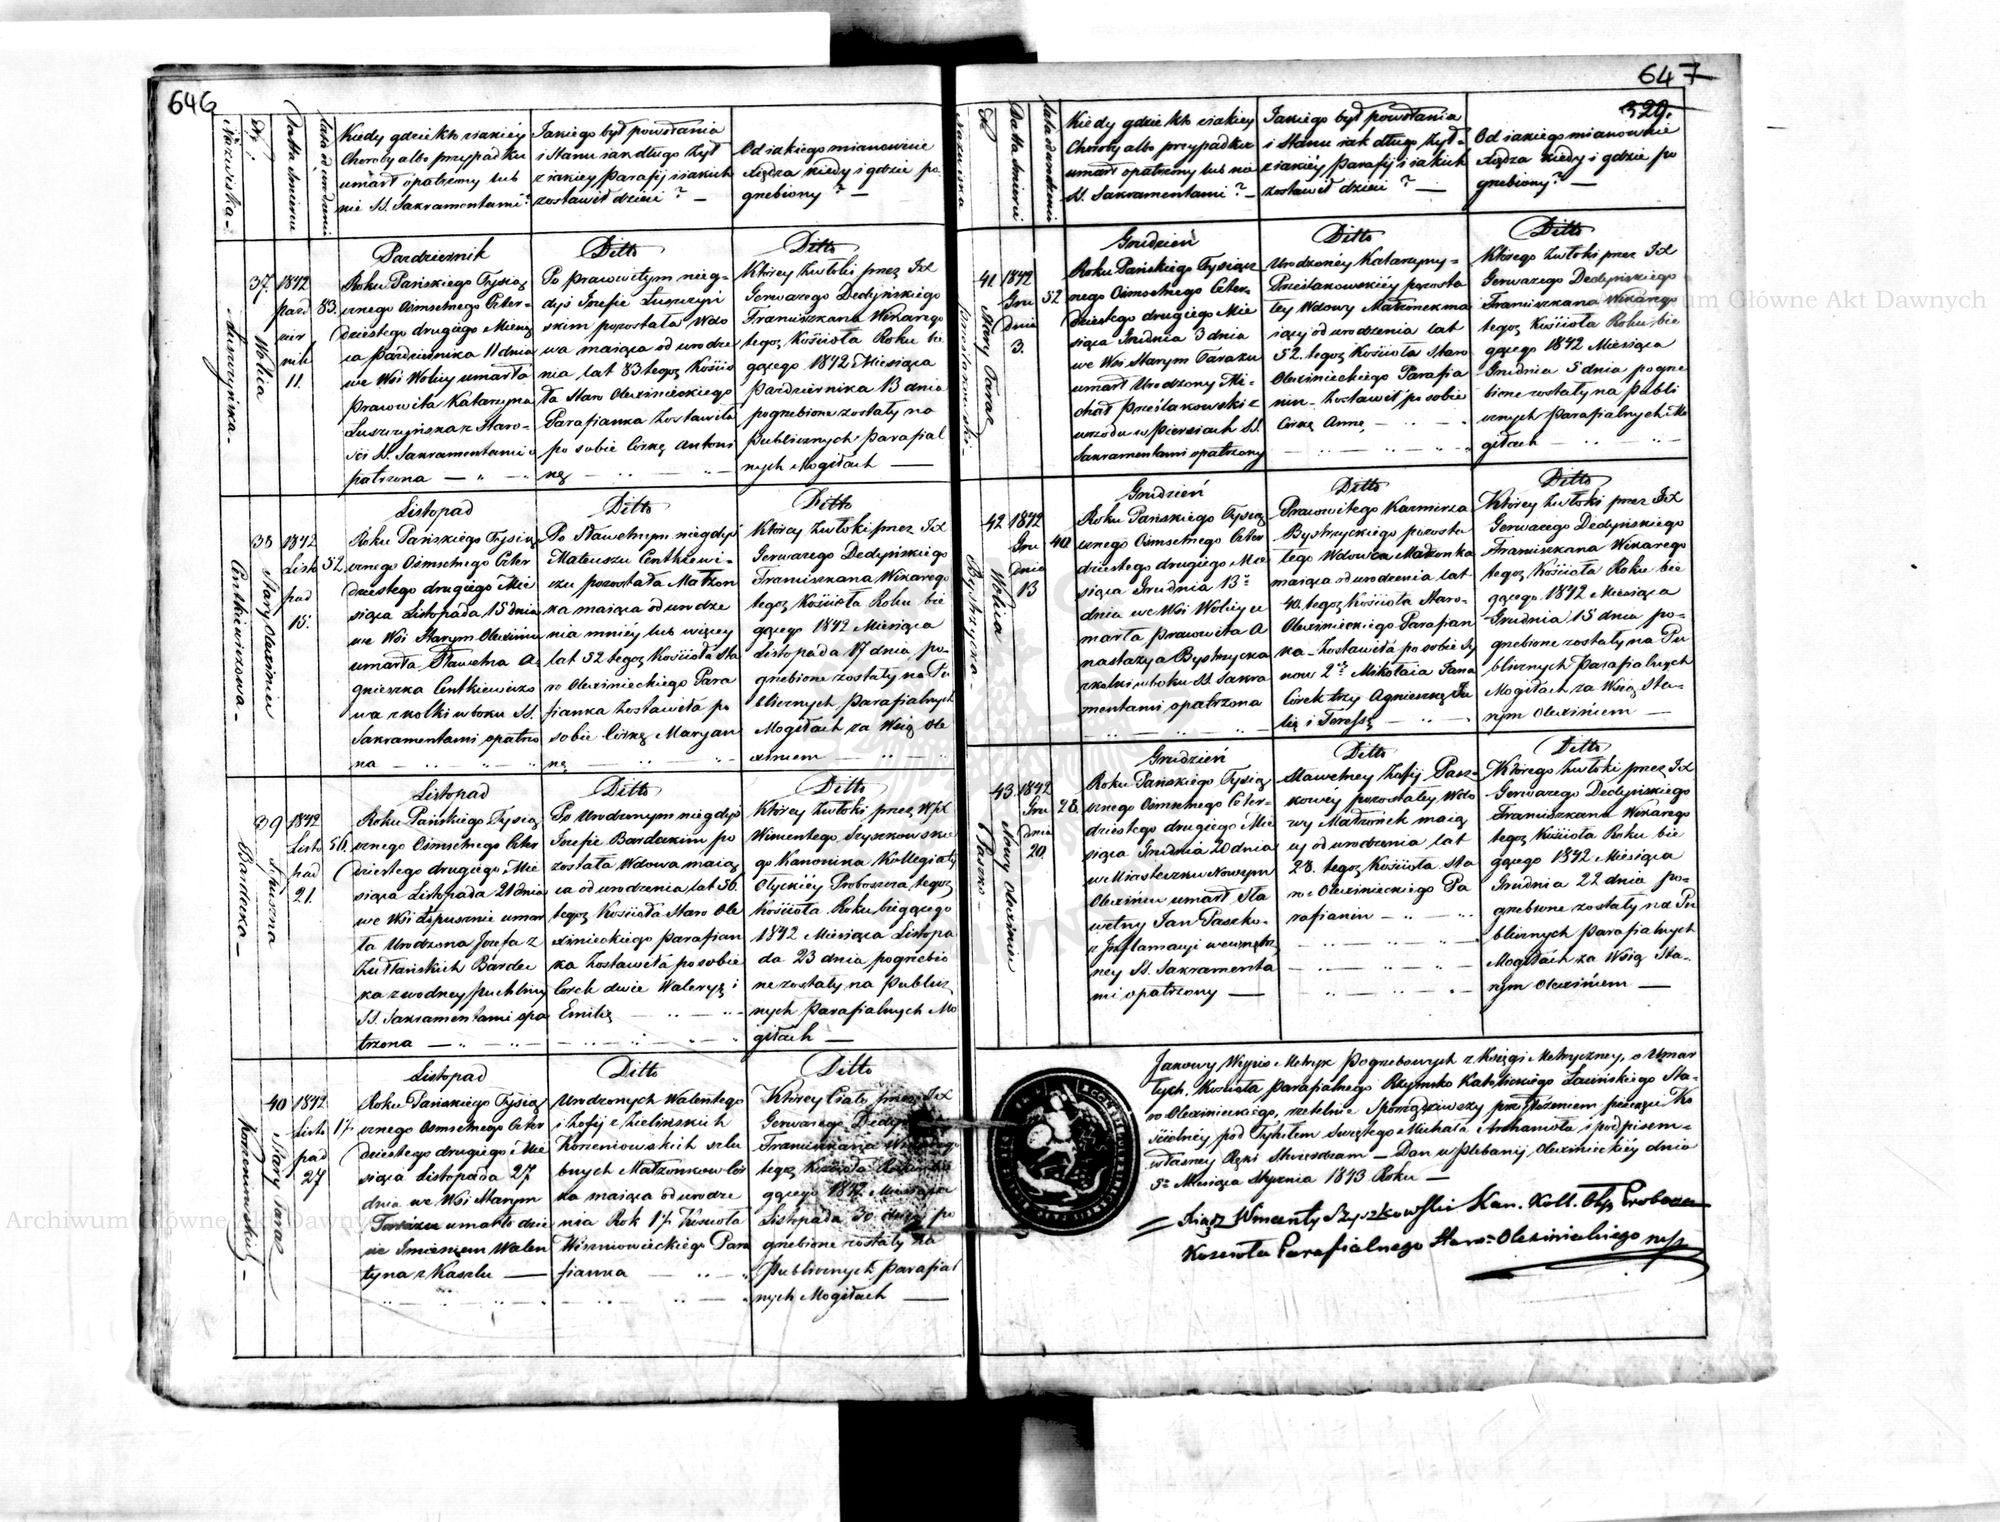 646
Nazwiska
Nr.
Datta śmierci
Lata od urodzenia
Kiedy gdzie kto z iakiéy
Choroby albo przypadku
umarł opatrzony lub
nie SS. Sakramentami?
Jakiego był powołania
i Stanu iak długo żył
z iakiey Parafij i iakich
zostawił dzieci? —
Od iakiego mianowicie
Xiędza kiedy i gdzie po
grzebiony? —
Łuszczyńska
37.
Wolica
1842
paź
dzier
nik
11.
83.
Październik
Roku Pańskiego Tysiąc
cznego Ośmsetnego Czter-
dziestego drugiego Miesią
ca Października 11 dnia
we Wsi Wolicy umarła
Prawowita Katarzyna
Łuszczyńska z Staro-
ści SS. Sakramentami o
patrzona —
Ditto
Po Prawowitym nieg-
dyś Jozefie Łuszczyń
skim pozostała Wdo
wa maiąca od urodze
nia lat 83 tegoż Kościo
ła Staro Olexinieckiego
Parafianka Zostawiła
po sobie Córkę Antoni
nę —
Ditto
Którey Zwłoki przez JX
Gerwazego Dedyńskiego
Franciszkana Wikarego
tegoż Kościoła Roku bie
gącego 1842 Miesiąca
Października 13 dnia
pogrzebione zostały na
Publicznych Parafial
nych Mogiłach —
Centkiewiczowa —
38
Stary Olexiniec
1842
Listo
pad
15.
52
Listopad
Roku Pańskiego Tysią
cznego Ośmsetnego Czter
dziestego drugiego Mie
siąca Listopada 15 dnia
we Wsi Starym Olexińcu
umarła Sławetna A-
gnieszka Centkiewiczo
wa z kolki w boku SS.
Sakramentami opatrzo
na —
Ditto
Po Sławetnym niegdyś
Mateuszu Centkiewi-
czu pozostała Małżon
ka maiąca od urodze
nia mniéy lub więcey
lat 52 tegoż Kościoła Sta
ro Olexinieckiego Para
fianka Zostawiła po
sobie Córkę Maryan
nę —
Ditto
Którey Zwłoki przez JX
Gerwazego Dedyńskiego
Franciszkana Wikarego
tegoż Kościoła Roku bie
gącego 1842 Miesiąca
Listopada 17 dnia po-
grzebione zostały na Pu
blicznych Parafialnych
Mogiłach za Wsią Ole
xińcem —
Bardecka —
39
Łopuszna
1842
Listo
pad
21.
56.
Listopad
Roku Pańskiego Tysią
cznego Ośmsetnego Czter
dziestego drugiego Mie
siąca Listopada 21 dnia
we Wsi Łopusznie umar
ła Urodzona Józefa z
Żułtańskich Bardec
ka z wodney puchliny
SS. Sakramentami opa
trzona —
Ditto
Po Urodzonym niegdyś
Jozefie Bardeckim po
została Wdowa maiąc
ca od urodzenia lat 56.
tegoż Kościoła Staro Ole
xinieckiego Parafian
ka Zostawiła po sobie
Córek dwie Waleryę i
Emilię —
Ditto
Którey Zwłoki przez WJX
Wincentego Szyszkowskie
go Kanonika Kollegiaty
Ołyckiéy Proboszcza tegoż
Kościoła Roku biegącego
1842 Miesiąca Listopa
da 23 dnia pogrzebio
ne zostały na Publicz
nych Parafialnych Mo
giłach —
40
Stary Taraż
1842
Listo
pad
27
17.
Listopad
Roku Pańskiego Tysią
cznego Ośmsetnego Czter
dziestego drugiego Mie
siąca Listopada 27
dnia we Wsi Starym
Tarażu umarło dzie
cie Imieniem Walen
tyna z Kaszlu —
Ditto
Urodzonych Walentego
i Zofij z Zielinskich
Korzeniowskich szlu
bnych Małżonkow Cór
ka maiąca od urodze
nia Rok 1½ Kościoła
Wiszniowieckiego Para
fianka —
Ditto
Którey Ciało przez JX
Gerwazego
Franciszkana Wikarego
tegoż Kościoła Roku bie
gącego 1842 Miesiąca
Listopada 30 dnia po
grzebione zostały na
Publicznych Parafial
nych Mogiłach —
647
329.
Nazwiska
Datta śmierci
Lata od urodzenia
Kiedy gdzie kto z iakiey
Choroby albo przypadku
umarł opatrzony lub nie
SS. Sakramentami? —
Jakiego był powołania
i Stanu iak długo żył
z iakiéy Parafij i iakich
zostawił dzieci? —
Od iakiego mianowicie
Xiędza kiedy i gdzie po
grzebiony? —
41.
Stary Taraż
1842
Gru
dnia
3.
52
Grudzień
Roku Pańskiego Tysiącz
nego Ośmsetnego Czter-
dziestego drugiego Mie
siąca Grudnia 3 dnia
we Wsi Starym Tarażu
umarł Urodzony Mi-
chał Prześlakowski z
wrzodu w Piersiach SS.
Sakramentami opatrzony
Ditto
Urodzonéy Katarzyny
Prześlakowskiéy pozosta
łey Wdowy Małżonek ma
iący od urodzenia lat
52. tegoż Kościoła Staro
Olexinieckiego Parafia
nin — Zostawił po sobie
Córkę Annę —
Ditto
Którego Zwłoki przez JX
Gerwazego Dedyńskiego
Franciszkana Wikarego
tegoż Kościoła Roku bie
gącego 1842 Miesiąca
Grudnia 5 dnia pogrze
bione zostały na Publi
cznych Parafialnych Mo
giłach —
Bystrzycka —
42
Wolica
1842
Gru
dnia
13
40
Grudzień
Roku Pańskiego Tysią
cznego Ośmsetnego Czter
dziestego drugiego Mie
siąca Grudnia 13
dnia we Wsi Wolicy u
marła Prawowita A
nastazya Bystrzycka
z kolki w boku SS. Sakra
mentami opatrzona
Ditto
Prawowitego Kazmirza
Bystrzyckiego pozosta
łego Wdowca Małżonka
maiąca od urodzenia lat
40. tegoż Kościoła Staro-
Olexinieckiego Parafian
ka — Zostawiła po sobie Sy
now 2 Mikołaia Jana
Córek trzy Agnieszkę Ju
lię i Teressę —
Ditto
Którey Zwłoki przez JX
Gerwazego Dedyńskiego
Franciszkana Wikarego
tegoż Kościoła Roku bie
gącego 1842 Miesiąca
Grudnia 15 dnia po-
grzebione zostały na Pu
blicznych Parafialnych
Mogiłach za Wsią Sta-
rym Olexińcem —
Paszko —
43
Nowy Olexiniec
1842
Gru
dnia
20.
28.
Grudzień
Roku Pańskiego Tysią
cznego Ośmsetnego Czter-
dziestego drugiego Mie
siąca Grudnia 20 dnia
w Miasteczku Nowym
Olexińcu umarł Sła
wetny Jan Paszko-
z Jnflamacyi wewnętrz
ney SS. Sakramenta
mi opatrzony —
Ditto
Sławetney Zofij Pasz-
kowéy pozostałey Wdo
wy Małżonek maią
cy od urodzenia lat
28. tegoż Kościoła Sta
ro Olexinieckiego Pa
rafianin —
Ditto
Którego Zwłoki przez JX
Gerwazego Dedyńskiego
Franciszkana Wikarego
tegoż Kościoła Roku bie
gącego 1842 Miesiąca
Grudnia 22 dnia po-
grzebione zostały na Pu
blicznych Parafialnych
Mogiłach za Wsią Sta-
rym Olexińcem —
Janowy Wypis Metryk Pogrzebowych z Księgi Metryczney, o Umar
łych, Kościoła Parafialnego Rzymsko Katolickiego Łacińskiego Sta-
ro Olexinieckiego, rzetelnie Sporządzwszy przyłożeniem pieczęci Ko
ścielnéy pod Tytułem Swiętego Michała Archanioła i podpisem
własney Ręki Stwierdzam — Dan w Plebanij Olexinieckiéy dnia
5 Miesiąca Stycznia 1843 Roku —
Xiądz Wincenty Szyszkowski Kan. Koll. Ołyc Proboszcz
Koscioła Parafialnego Staro-Olexinieckiego mp
Archiwum Główne Akt Dawnych
Archiwum Główne Akt Dawnych